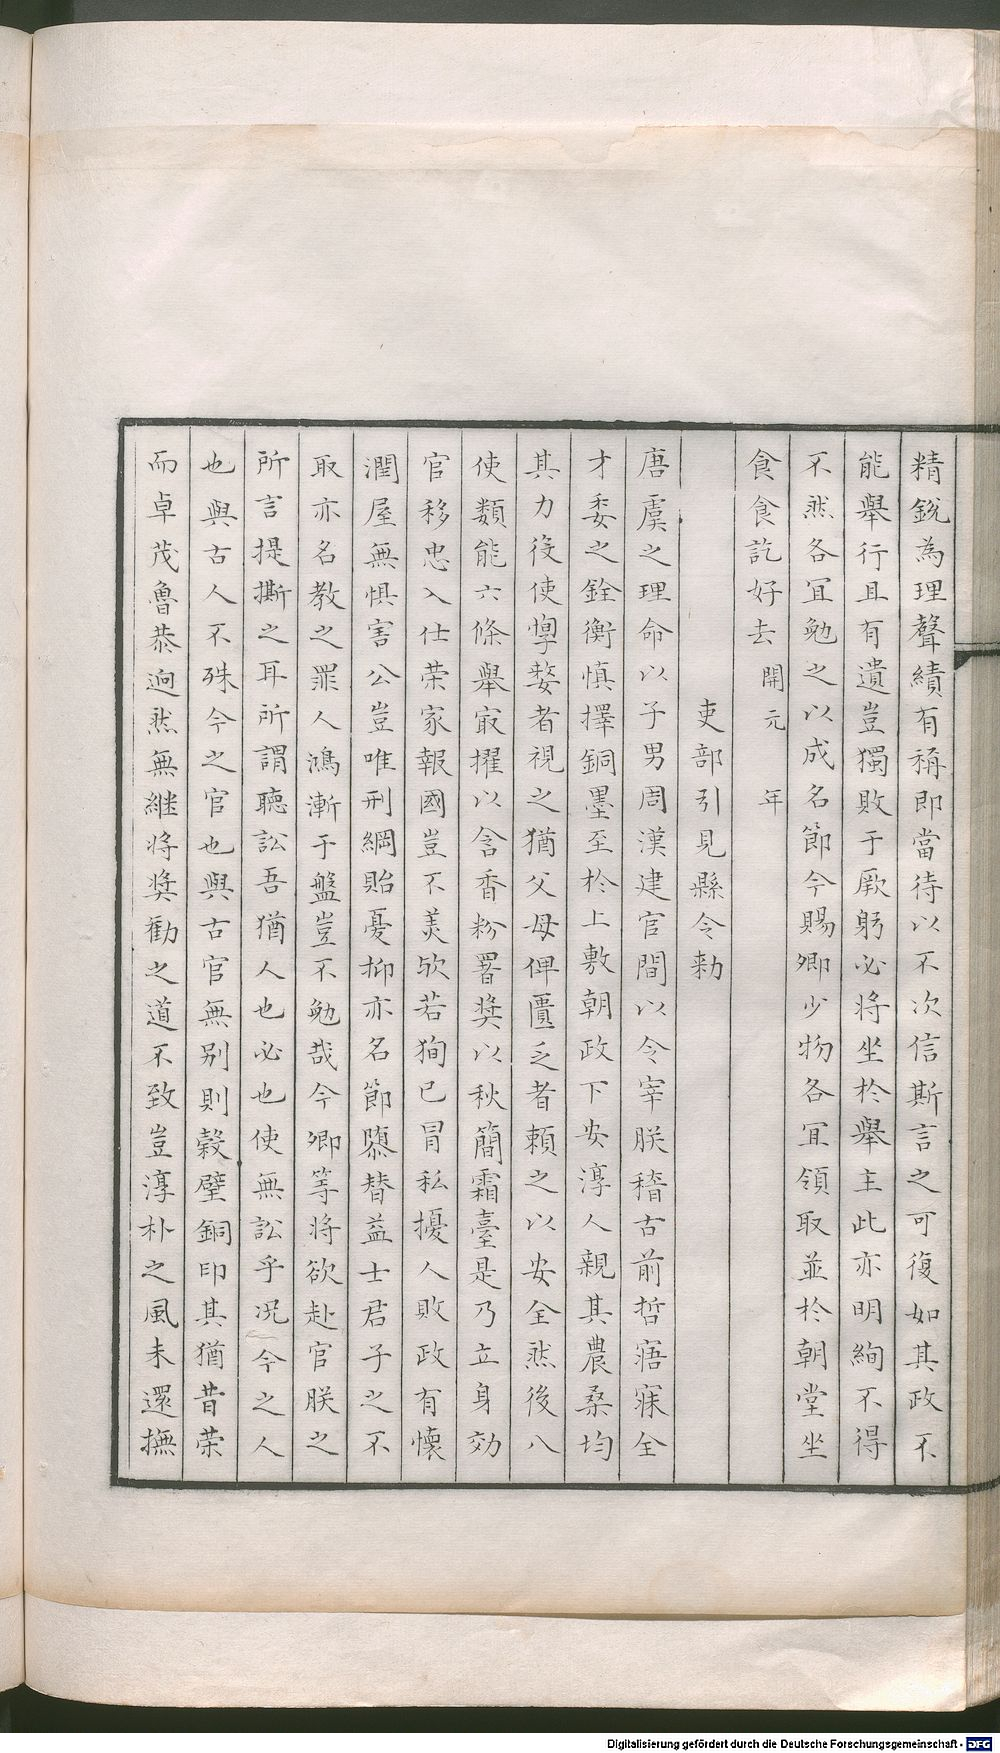 精銳為理聲績有稱即當待以不次信斯言之可復如其政不
能舉行且有遺豈獨敗于厥躬必將坐於舉主此亦明絢不得
不然各冝勉之以成名節今賜卿少物各冝領取並於朝堂坐
食食訖好去開元　年
吏部引見縣令勑
唐虞之理命以子男周漢建官間以令宰朕稽古前哲寤寐全
才委之銓衡慎擇銅墨至於上敷朝政下安淳人親其農桑均
其力役使惸嫠者視之猶父母俾匱乏者賴之以安全然後八
使類能六條舉㝡擢以含香粉署奬以秋簡霜臺是乃立身効
官移忠入仕荣家報國豈不羙歟若狥已冒私擾人敗政有懷
潤屋無惧害公豈唯刑綱貽憂抑亦名節隳替益士君子之不
取亦名教之罪人鴻漸于盤豈不勉哉今卿等將欲赴官朕之
所言提撕之耳所謂聽訟吾猶人也必也使無訟乎况今之人
也與古人不殊今之官也與古官無别則穀璧銅印其猶昔荣
而卓茂魯恭逈然無継將奬勸之道不致豈淳朴之風未還撫
Digitalisierung gefördert durch die Deutsche Forschungsgemeinschaft - DFG